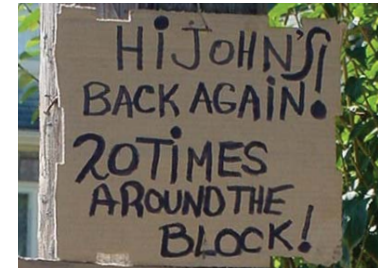 HiJOHN'S!
BACK AGAiN!
20TiMES
AROUNDTHE
BLOCK!